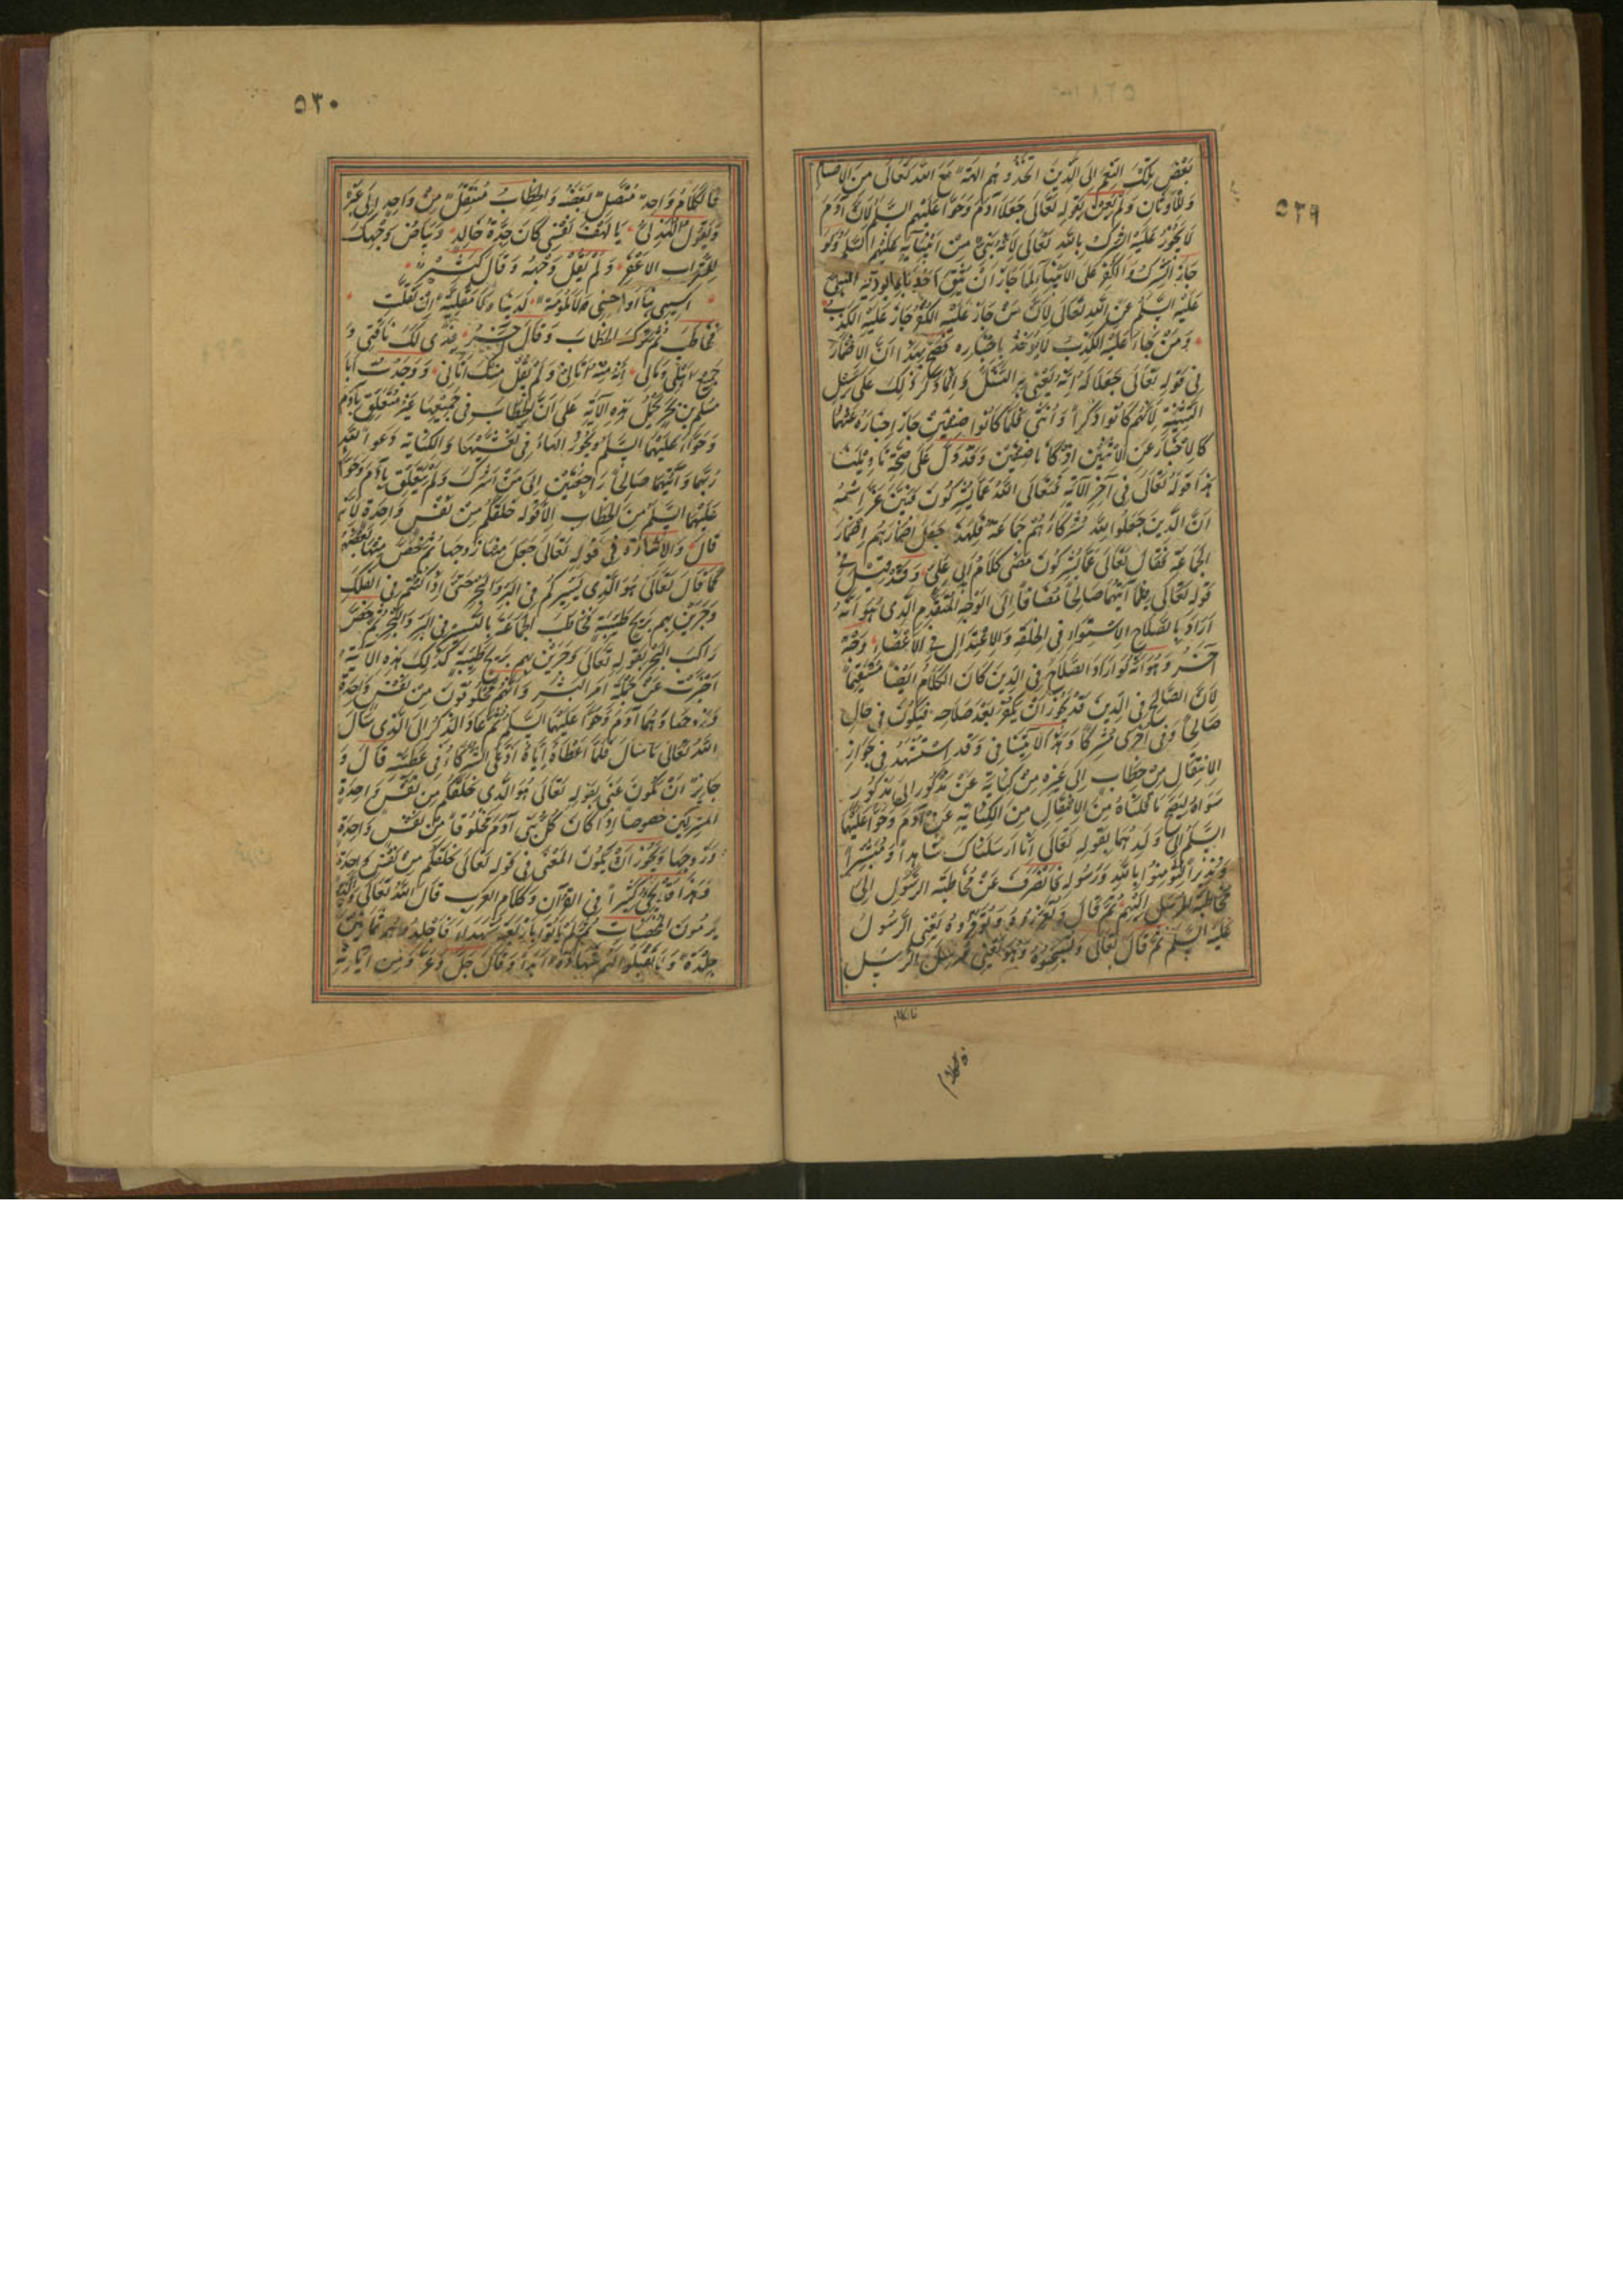 ٥٢٩
بَعْضَ تِلْكَ النِّعَمِ اِلَى الَّذِينَ اتَّخَذُوهُم الِهَةً مَعَ اللهِ تَعَالَى مِنَ الاَصْنَامِ
وَالاَوْثَانِ وَلَمْ يَعْنِ بِقَوْلِهِ تَعَالَى جَعَلَا آدَمَ وَحَوَّا عَلَيْهِمِ السَّلم لِاَنَّ آدَمَ
لَا يَجُوزُ عَلَيْهِ الشِّرْكُ بِاللهِ تَعَالَى لِاَنَّهُ نَبِيٌّ مِنْ اَنْبِيَآئِهِ عَلَيْهِمُ السَّلم وَلَو
جَازَ الشِّرْكُ وَالْكُفْرُ عَلَى الاَنْبِيَآءِ لَمَا جَازَ اَنْ يَثِقَ اَحَدُنَا بِمَا يُؤدِّيهِ النَّبِيُّ
عَلَيْهِ السَّلم عَنِ اللهِ تَعَالَى لِاَنَّ مَنْ جَازَ عَلَيْهِ الْكُفْرُ جَازَ عَلَيْهِ الْكَذِبُ
وَمَنْ جَازَ عَلَيْهِ الْكَذِبُ لَا يُؤخَذُ بِاَخْبَارِهِ فَصَحَّ بِهَذَا اَنَّ الاِضْمَارَ
فِى قَوْلِهِ تَعَالَى جَعَلَا لَهُ اِنَّهُ يَعْنِى بِهِ النَّسْلَ وَاِنَّمَا ذَكَرَ ذَلِكَ عَلَى سَبِيلِ
التَّثْنِيَةِ لِاَنَّهُمْ كَانُوا ذَكَرًا وَاُنْثَى فَلَمَّا كَانُوا صِنْفَيْنِ جَازَ اِخْبَارُهُ عَنْهُمَا
كَالاِخْبَارِ عَنِ الاِثْنَيْنِ اِذْ كَانَا صِنْفَيْنِ وَقَدْ دَلَّ عَلَى صِحَّةِ تَاوِيْلِنَا
هَذَا قَوْلُهُ تَعَالَى فِى آخِرِ الآيَةِ فَتَعَالَى اللهُ عَمَّا يُشْرِكُونَ فَبَيَّنَ عَزَّ اسْمُهُ
اَنَّ الَّذِينَ جَعَلُوا لِلَّهِ شُرَكَاءَ هُمْ جَمَاعَةٌ فَلِهَذَا جَعَلَ اِضْمَارَهُم اِضْمَارَ
الْجَمَاعَةِ فَقَالَ تَعَالَى عَمَّا يُشْرِكُونَ مَضَى كَلَامُ اَبِى عَلِىٍّ وَقَدْ قِيلَ فِى
قَوْلِهِ تَعَالَى فَلَمَّا آتَيهُمَا صَالِحًا مُضَافًا اِلَى الْوَجْهِ الْمُتَقَدِّمِ الَّذِى هُوَ اَنَّهُ
اَرَادَ بِالصَّلَاحِ الاِسْتِوَاءِ فِى الْخِلْقَةِ وَالاِعْتِدَالِ فِى الاَعْضَاءِ وَجْهٌ
آخَرُ وَهُوَ اَنَّهُ لَو اَرَادَ الصَّلَاحَ فِى الدِّينِ كَانَ الْكَلَامُ اَيْضًا مُسْتَقِيْمًا
لِاَنَّ الصَّالِحَ فِى الدِّينِ قَدْ يَجُوزُ اَنْ يَكْفُرَ بَعْدَ صَلَاحِهِ فَيَكُونُ فِى حَالٍ
صَالِحًا وَفِى اُخْرَى مُشْرِكًا وَهَذَا لَا يَتَنَافَى وَقَدِ اسْتُشْهِدَ فِى جَوَازِ
الاِنْتِقَالِ مِنْ خِطَابٍ اِلَى غَيْرِهِ وَمِنْ كِنَايَةٍ عَنْ مَذْكُورٍ اِلَى مَذْكُورٍ
سِوَاهُ لِيَصِحَّ مَا قُلْنَاهُ مِنَ الاِنْتِقَالِ مِنَ الْكِنَايَةِ عَنْ آدَمَ وَحَوَّا عَلَيْهِمَا
السَّلم اِلَى وَلَدِهِمَا بِقَوْلِهِ تَعَالَى اِنَّا اَرْسَلْنَاكَ شَاهِدًا وَمُبَشِّرًا
وَنَذِيرًا لِتُؤمِنُوا بِاللهِ وَرَسُولِهِ فَانْصَرَفَ عَنْ مُخَاطَبَةِ الرَّسُولِ اِلَى
مُخَاطَبَةِ الْمُرْسَلِ اِلَيْهِمْ ثُمَّ قَالَ وَتُعَزِّرُوهُ وَتُوَقِّرُوهُ يَعْنِى الرَّسُولَ
عَلَيْهِ السَّلم ثُمَّ قَالَ تَعَالَى وَتُسَبِّحُوهُ وَهُوَ يَعْنِى مُرْسِلَ الرَّسُولِ
فالكلام
فالكلام
٥٣٠
فَالْكَلَامُ وَاحِدٌ مُتَّصِلٌ بَعْضُهُ وَالْخِطَابُ مُنْتَقِلٌ مِنْ وَاحِدٍ اِلَى غَيْرِهِ
وَيَقُولُ الْهُذَلِىُّ يَا لَهْفَ نَفْسِى كَانَ جِدَّةُ خَالِدٍ وَبَيَاضُ وَجْهِكَ
لِلتُّرَابِ الاَعْفَرِ وَلَمْ يَقُلْ وَجْهِهِ وَقَالَ كُثَيِّرٌ
اَسِيئِى بِنَا اَو اَحْسِنِى لَا مَلُومَةً لَدَيْنَا وَلَا مَقْلِيَّةً اِنْ تَقَلَّتِ
فَخَاطَبَ ثُمَّ تَرَكَ الْخِطَابَ وَقَالَ آخَرُ فِدًى لَكَ نَاقَتِى وَ
جَمِيْعُ اَهْلِى وَمَالِى اِنَّهُ مِنْهُ اَتَانِى وَلَمْ يَقُلْ مِنْكَ اَتَانِى وَوَجَدْتُ اَبَا
مُسْلِمِ بْنَ بَحْرٍ يَحْمِلُ هَذِهِ الآيَةَ عَلَى اَنَّ الْخِطَابَ فِى جَمِيْعِهَا غَيْرُ مُتَعَلِّقٍ بِآدَمَ
وَحَوَّاءَ عَلَيْهِمَا السَّلم وَيَجُوزُ الْهَاءَ فِى تَغَشَّيهَا وَالْكِنَايَةَ دَعَوَا اللهَ
رَبَّهُمَا وَآتَيهُمَا صَالِحًا رَاجِعَيْنِ اِلَى مَنْ اَشْرَكَ وَلَمْ يَتَعَلَّقْ بِآدَمَ وَحَوَّا
عَلَيْهِمَا السَّلم مِنَ الْخِطَابِ اِلَّا قَوْلُهُ خَلَقَكُمْ مِنْ نَفْسٍ وَاحِدَةٍ لِاَنَّهُ
قَالَ وَالاِشَارَةُ فِى قَوْلِهِ تَعَالَى جَعَلَ مِنْهَا زَوْجَهَا ثُمَّ خَصَّ مِنْهَا بَعْضَهُمْ
كَمَا قَالَ تَعَالَى هُوَ الَّذِى يُسَيِّرُكُمْ فِى الْبَرِّ وَالْبَحْرِ حَتَّى اِذَا كُنْتُمْ فِى الْفُلْكِ
وَجَرَيْنَ بِهِمْ بِرِيْحٍ طَيِّبَةٍ فَخَاطَبَ الْجَمَاعَةَ بِالتَّسْيِيرِ فِى الْبَرِّ وَالْبَحْرِ ثُمَّ خَصَّ
رَاكِبَ الْبَحْرِ بِقَوْلِهِ تَعَالَى وَجَرَيْنَ بِهِمْ بِرِيْحٍ طَيِّبَةٍ كَذَلِكَ هَذِهِ الآيَةُ
اَخْبَرَتْ عَنْ جُمْلَةِ اَمْرِ الْبَشَرِ وَاَنَّهُمْ مَخْلُوقُونَ مِنْ نَفْسٍ وَاحِدَةٍ
وَزَوْجِهَا وَهُمَا آدَمُ وَحَوَّا عَلَيْهِمَا السَّلم ثُمَّ عَادَ الذِّكْرُ اِلَى الَّذِى سَاَلَ
اللهَ تَعَالَى مَا سَاَلَ فَلَمَّا اَعْطَاهُ اِيَّاهُ ادَّعَى الشُّرَكَاءَ فِى عَطِيَّتِهِ قَالَ وَ
جَايِزٌ اَنْ يَكُونَ عَنَى بِقَوْلِهِ تَعَالَى هُوَ الَّذِى خَلَقَكُمْ مِنْ نَفْسٍ وَاحِدَةٍ
الْمُشْرِكِينَ خُصُوصًا اِذَا كَانَ كُلُّ بَنِى آدَمَ مَخْلُوقًا مِنْ نَفْسٍ وَاحِدَةٍ
وَزَوْجِهَا وَيَجُوزُ اَنْ يَكُونَ الْمَعْنَى فِى قَوْلِهِ تَعَالَى خَلَقَكُمْ مِنْ نَفْسٍ وَاحِدَةٍ
وَهَذَا يَجِئُ كَثِيْرًا فِى الْقُرْآنِ وَكَلَامِ الْعَرَبِ قَالَ اللهُ تَعَالَى وَالَّذِينَ
يَرْمُونَ الْمُحْصَنَاتِ ثُمَّ لَمْ يَاْتُوا بِاَرْبَعَةِ شُهَدَاءَ فَاجْلِدُوهُمْ ثَمَانِيْنَ
جَلْدَةً وَلَا تَقْبَلُوا لَهُمْ شَهَادَةً اَبَدًا وَقَالَ جَلَّ وَعَزَّ وَمِنْ آيَاتِهِ